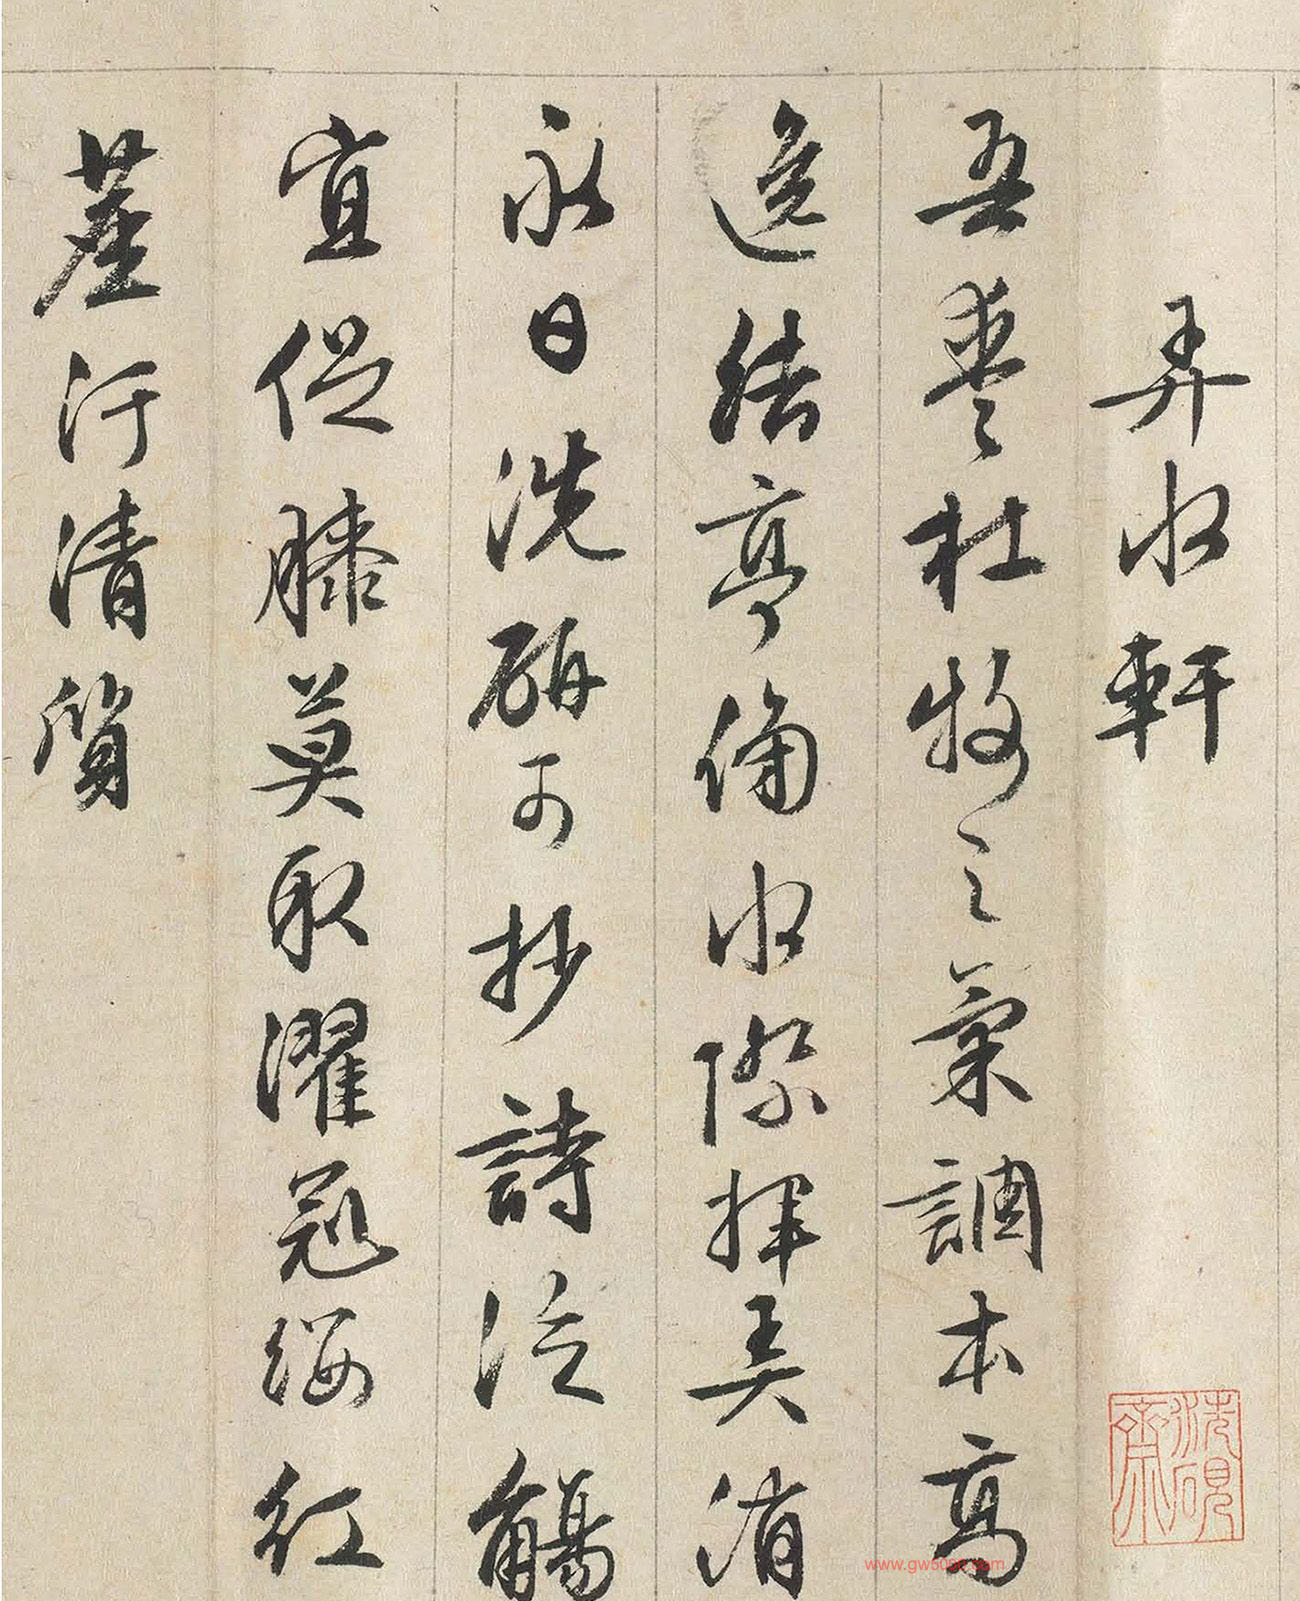 弄水軒
吾愛杜牧之氣調本高
逸結亭水際揮弄消
永日洗硯可抄詩泛觴
宜促膝莫取濯冠纓紅
塵汙清質
洗硯齋
www.gw5000.com